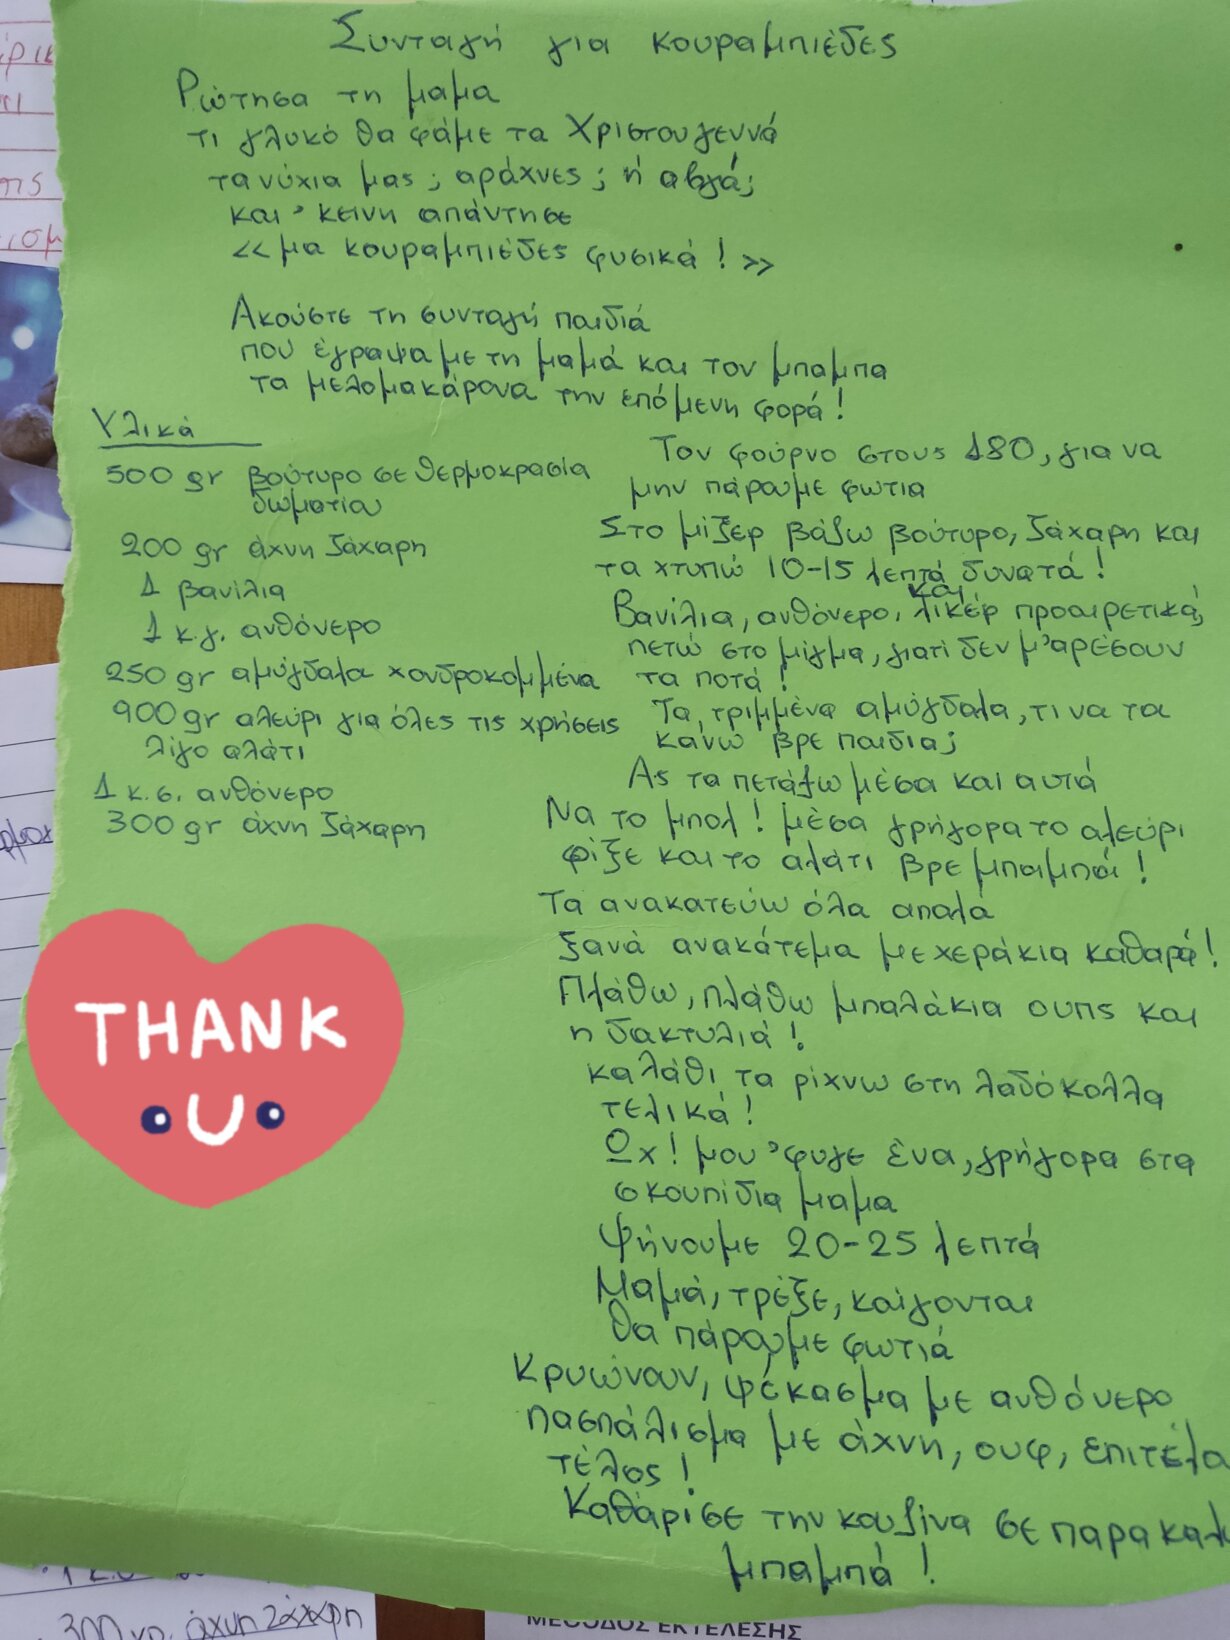 Συνταγή για κουραμπιέδες
Ρώτησα τη μαμα
τι γλυκό θα φάμε τα Χριστουγεννά
τα νύχια μας ; αράχνες ; ή αβγά;
και 'κεινη απάντησε
<< μα κουραμπιέδες φυσικά ! >>
Ακούστε τη συνταγή παιδιά
πού έγραψα με τη μαμά και τον μπαμπα
τα μελομακάρονα την επόμενη φορά !
Υλικά
500 gr βούτυρο σε θερμοκρασία
δωματίου
200 gr άχνη ζάχαρη
1 βανίλια
1 κ.γ. ανθόνερο
250 gr αμύγδαλα χονδροκομμένα
900 gr αλεύρι για όλες τις χρήσεις
λίγο αλάτι
1 κ.σ. ανθόνερο
300 gr άχνη ζάχαρη
Τον φούρνο στους 180, για να
μην πάρουμε φωτια
Στο μίξερ βάζω βούτυρο, ζάχαρη και
τα χτυπώ 10-15 λεπτά δυνατά !
Βανίλια, ανθόνερο, και λικέρ προαιρετικά,
πετώ στο μίγμα, γιατί δεν μ'αρέσουν
τα ποτά !
Τα τριμμένα αμύγδαλα, τι να τα
κάνω βρε παιδια;
Ας τα πετάξω μέσα και αυτά
Να το μπολ ! μέσα γρήγορα το αλεύρι
ρίξε και το αλάτι βρε μπαμπά !
Τα ανακατεύω όλα απαλά
ξανά ανακάτεμα με χεράκια καθαρά !
Πλάθω, πλάθω μπαλάκια ουπς και
η δακτυλιά !
καλάθι τα ρίχνω στη λαδόκολλα
τελικά !
Ωχ ! μου 'φυγε ένα, γρήγορα στα
σκουπίδια μαμα
Ψήνουμε 20-25 λεπτά
Μαμά, τρέξε, καίγονται
θα πάρουμε φωτιά
Κρυώνουν, ψέκασμα με ανθόνερο
πασπάλισμα με άχνη, ουφ, επιτέλο
τέλος !
Καθάρισε την κουζίνα σε παρακαλ
μπαμπά !
THANK
U
300 γρ. άχνη ζάχαρη
ΜΕΘΟΔΟΣ ΕΚΤΕΛΕΣΗΣ